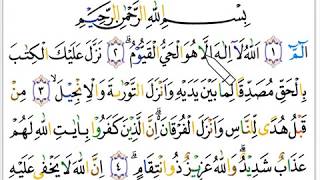 بِسْمِ اللهِ الرَّحْمٰنِ الرَّحِيْمِ
الٓمّٓ ۙ ١ اللهُ لَآ اِلٰهَ اِلَّا هُوَ الْحَيُّ الْقَيُّوْمُ ۗ ٢ نَزَّلَ عَلَيْكَ الْكِتٰبَ
بِالْحَقِّ مُصَدِّقًا لِّمَا بَيْنَ يَدَيْهِ وَاَنْزَلَ التَّوْرٰىةَ وَالْاِنْجِيْلَ ۙ ٣ مِنْ
قَبْلُ هُدًى لِّلنَّاسِ وَاَنْزَلَ الْفُرْقَانَ ۗ اِنَّ الَّذِيْنَ كَفَرُوْا بِاٰيٰتِ اللهِ لَهُمْ
عَذَابٌ شَدِيْدٌ ۗ وَاللهُ عَزِيْزٌ ذُو انْتِقَامٍ ۗ ٤ اِنَّ اللهَ لَا يَخْفٰى عَلَيْهِ